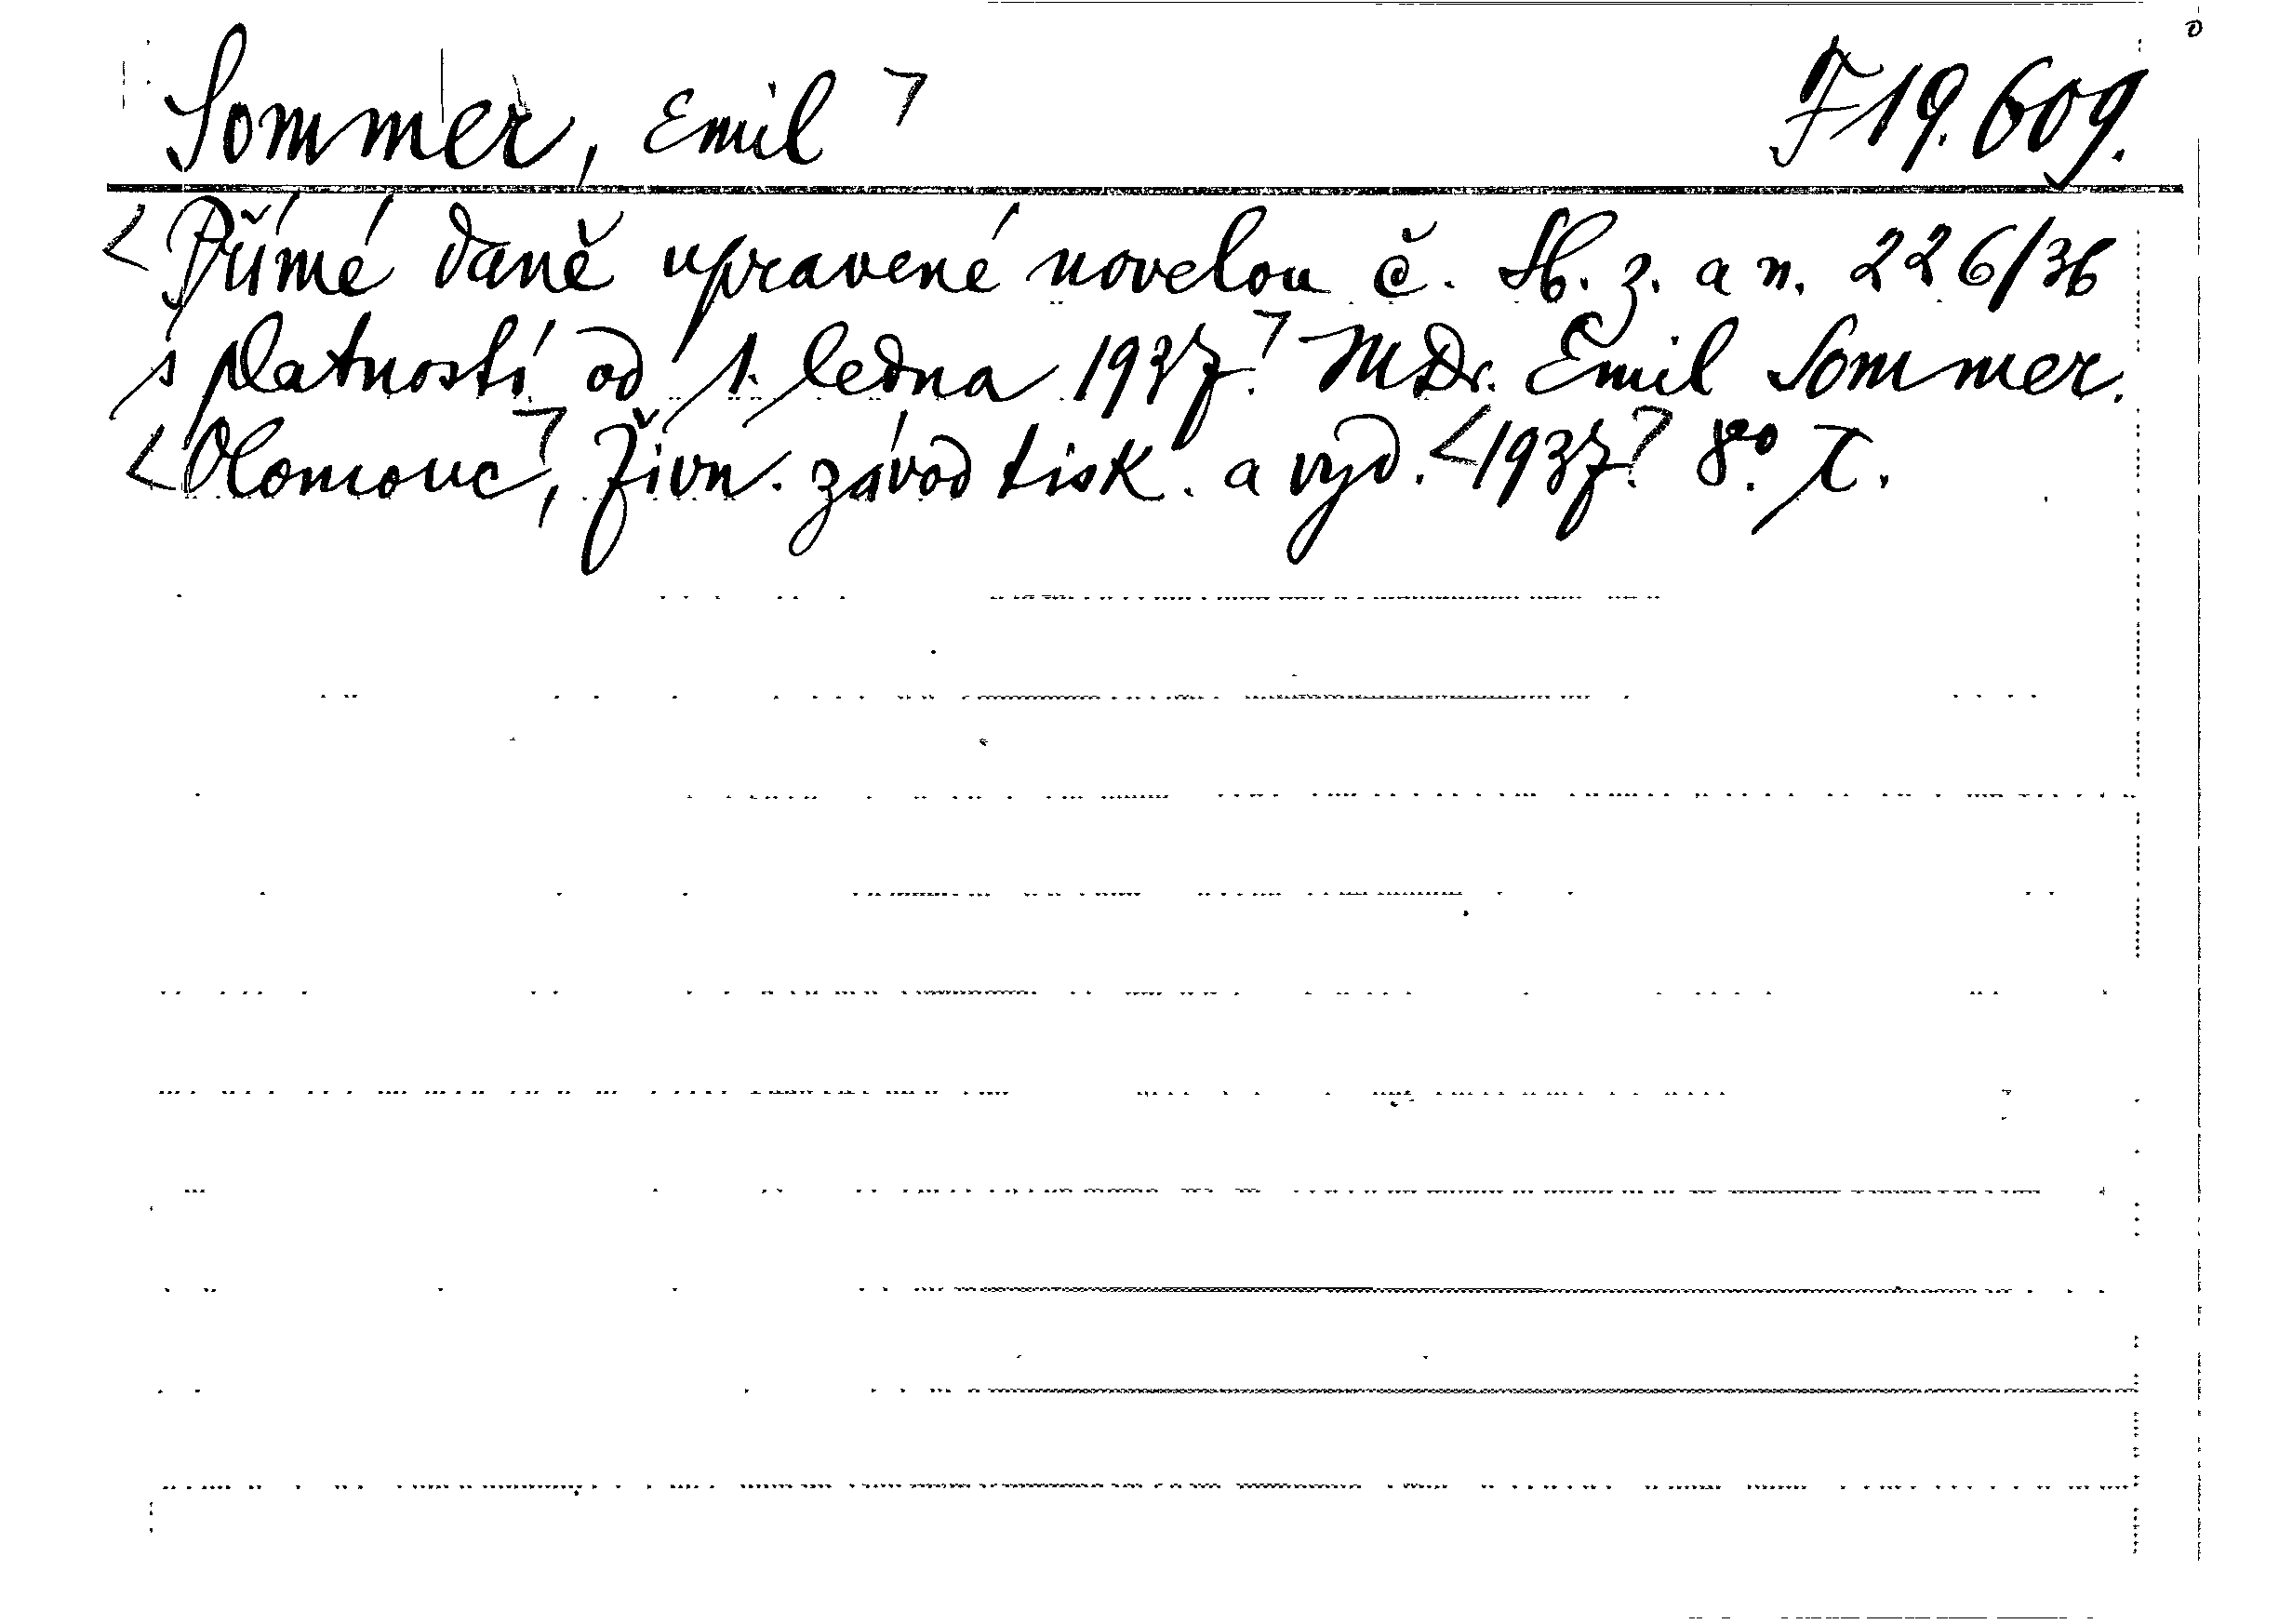 Sommer, Emil ㄱ F 19.609.
< Přímé daně upravené novelou č. Sb. z. a n. 226/36
s platností od 1. ledna 1937.ㄱ MDr. Emil Sommer.
<Olomouc,ㄱ Živn. závod tisk. a vyd. <1937.ㄱ 8°. T.